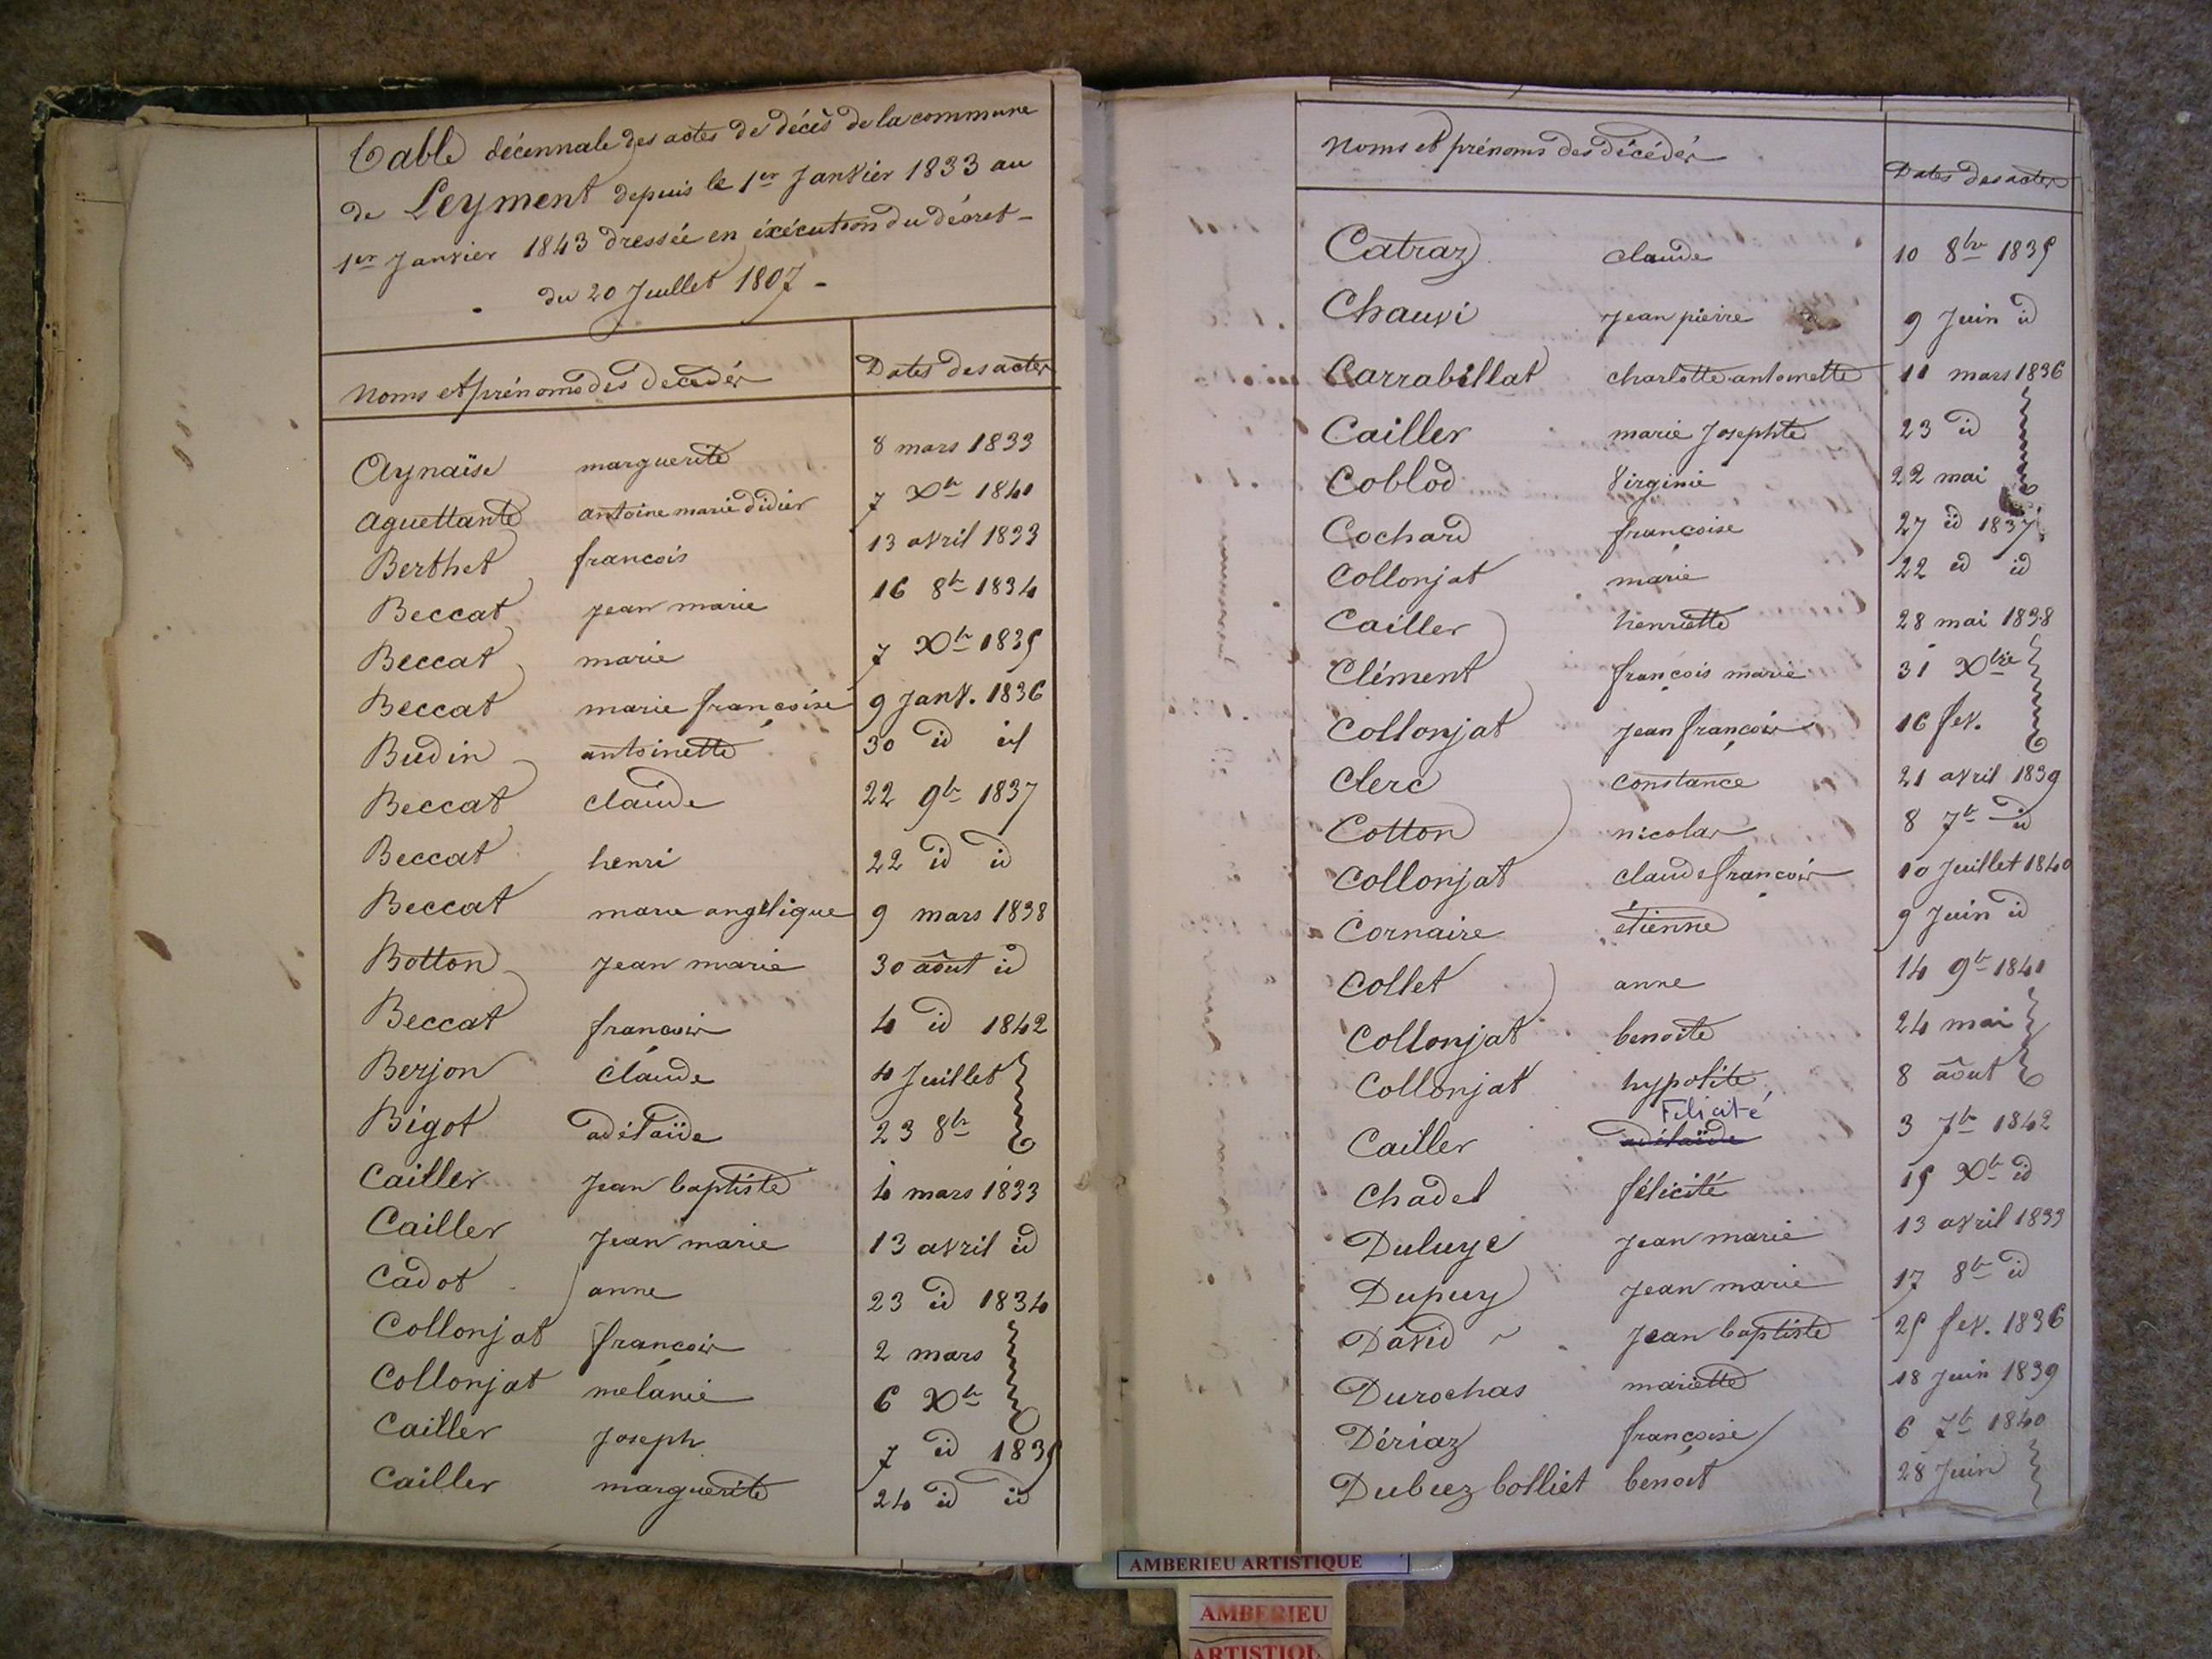 Table décennale des actes de décès de la commune
de Leyment depuis le 1er Janvier 1833 au
1er Janvier 1843 dressée en éxécution du décret
du 20 Juillet 1807
Noms et prénoms des décédés Dates des actes
Aynaïse marguerite 8 mars 1833
Aguettante antoine marie didier 7 Xbr 1840
Berthet francois 13 avril 1833
Beccat jean marie 16 8br 1834
Beccat marie 7 Xbr 1835
Beccat marie françoise 9 janv. 1836
Budin antoinette 30 id id
Beccat claude 22 9br 1837
Beccat henri 22 id id
Beccat marie angélique 9 mars 1838
Botton jean marie 30 août id
Beccat françois 4 id 1842
Berjon claude 4 Juillet
Bigot adélaïde 23 8br
Cailler jean baptiste 4 mars 1833
Cailler jean marie 13 avril id
Cadot anne 23 id 1834
Collonjat françois 2 mars
Collonjat mélanie 6 Xbr
Cailler joseph 7 id 1835
Cailler marguerite 24 id id
Noms et prénoms des décédés Dates des actes
Catraz claude 10 8bre 1835
Chauvi jean pierre 9 Juin id
Carrabillat charlotte antoinette 11 mars 1836
Cailler marie Josephte 23 id
Coblod Virginie 22 mai
Cochard françoise 27 id 1837
Collonjat marie 22 id id
Cailler henriette 28 mai 1838
Clément françois marie 31 Xbre
Collonjat jean françois 16 fev.
Clerc constance 21 avril 1839
Cotton nicolas 8 7br id
Collonjat claude françois 10 Juillet 1840
Cornaire étienne 9 Juin id
Collet anne 14 9br 1841
Collonjat benoite 24 mai
Collonjat hypolite 8 août
Félicité
Cailler adélaïde 3 7br 1842
Chadel félicité 15 Xbr id
Duluye jean marie 13 avril 1833
Dupuy jean marie 17 8br id
David jean baptiste 25 fev. 1836
Durochas mariette 18 Juin 1839
Dériaz françoise 6 7br 1840
Dubuez bolliet benoit 28 Juin
AMBERIEU ARTISTIQUE
AMBERIEU
ARTISTIQU